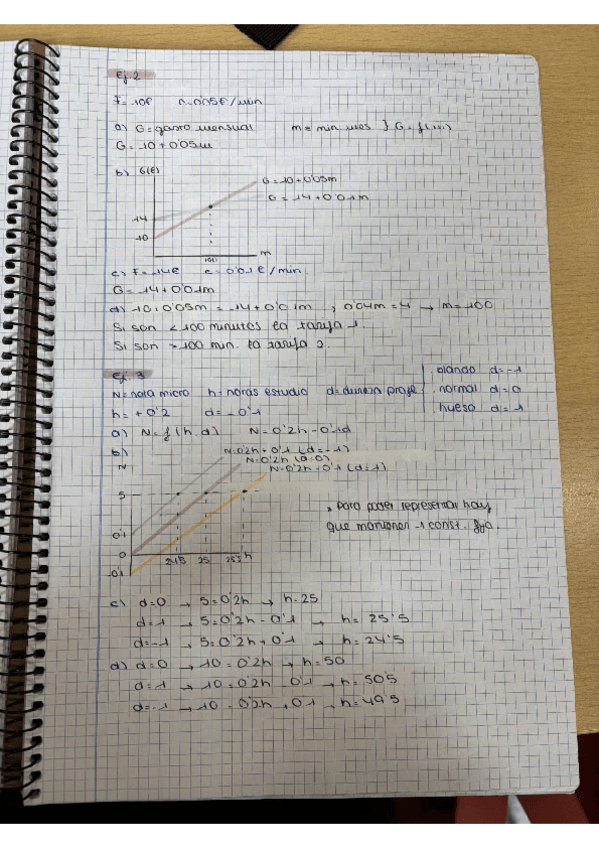 Ej. 2
F = 10€ c = 0'05€/min
a) G = gasto mensual m = min mes } G = f(m)
G = 10 + 0'05m
b) G(€)
G = 10 + 0'05m
G = 14 + 0'01m
14
10
100
m
c) F = 14€ c = 0'01€/min.
G = 14 + 0'01m
d) 10 + 0'05m = 14 + 0'01m ; 0'04m = 4 → m = 100
Si son < 100 minutos la tarifa 1.
Si son > 100 min. la tarifa 2.
Ej. 3
N = nota micro h = horas estudio d = dureza profe
blando d = -1
normal d = 0
hueso d = 1
h = +0'2 d = -0'1
a) N = f(h, d) N = 0'2h - 0'1d
b)
N = 0'2h + 0'1 (d = -1)
N = 0'2h (d = 0)
N = 0'2h - 0'1 (d = 1)
N
5
0'1
0
-0'1
24'5 25 25'5 h
* Para poder representar hay
que mantener 1 const. fija.
c) d = 0 → 5 = 0'2h → h = 25
d = 1 → 5 = 0'2h - 0'1 → h = 25'5
d = -1 → 5 = 0'2h + 0'1 → h = 24'5
d) d = 0 → 10 = 0'2h → h = 50
d = 1 → 10 = 0'2h - 0'1 → h = 50'5
d = -1 → 10 = 0'2h + 0'1 → h = 49'5